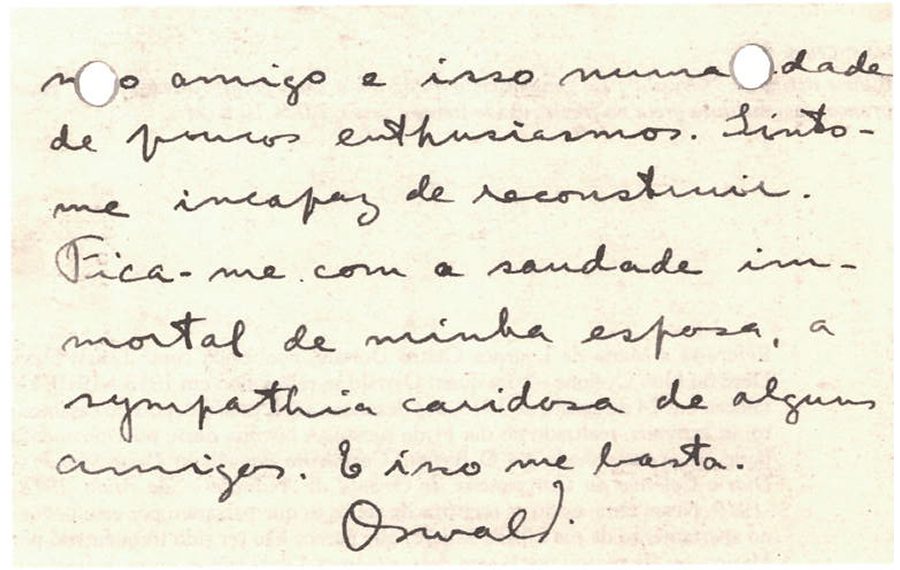 amigo e isso numa dade
de poucos enthusiasmos. Sinto-
me incapaz de reconstruir.
Fica-me com a saudade im-
mortal de minha esposa, a
sympathia caridosa de alguns
amigos. E isso me basta.
Oswald.